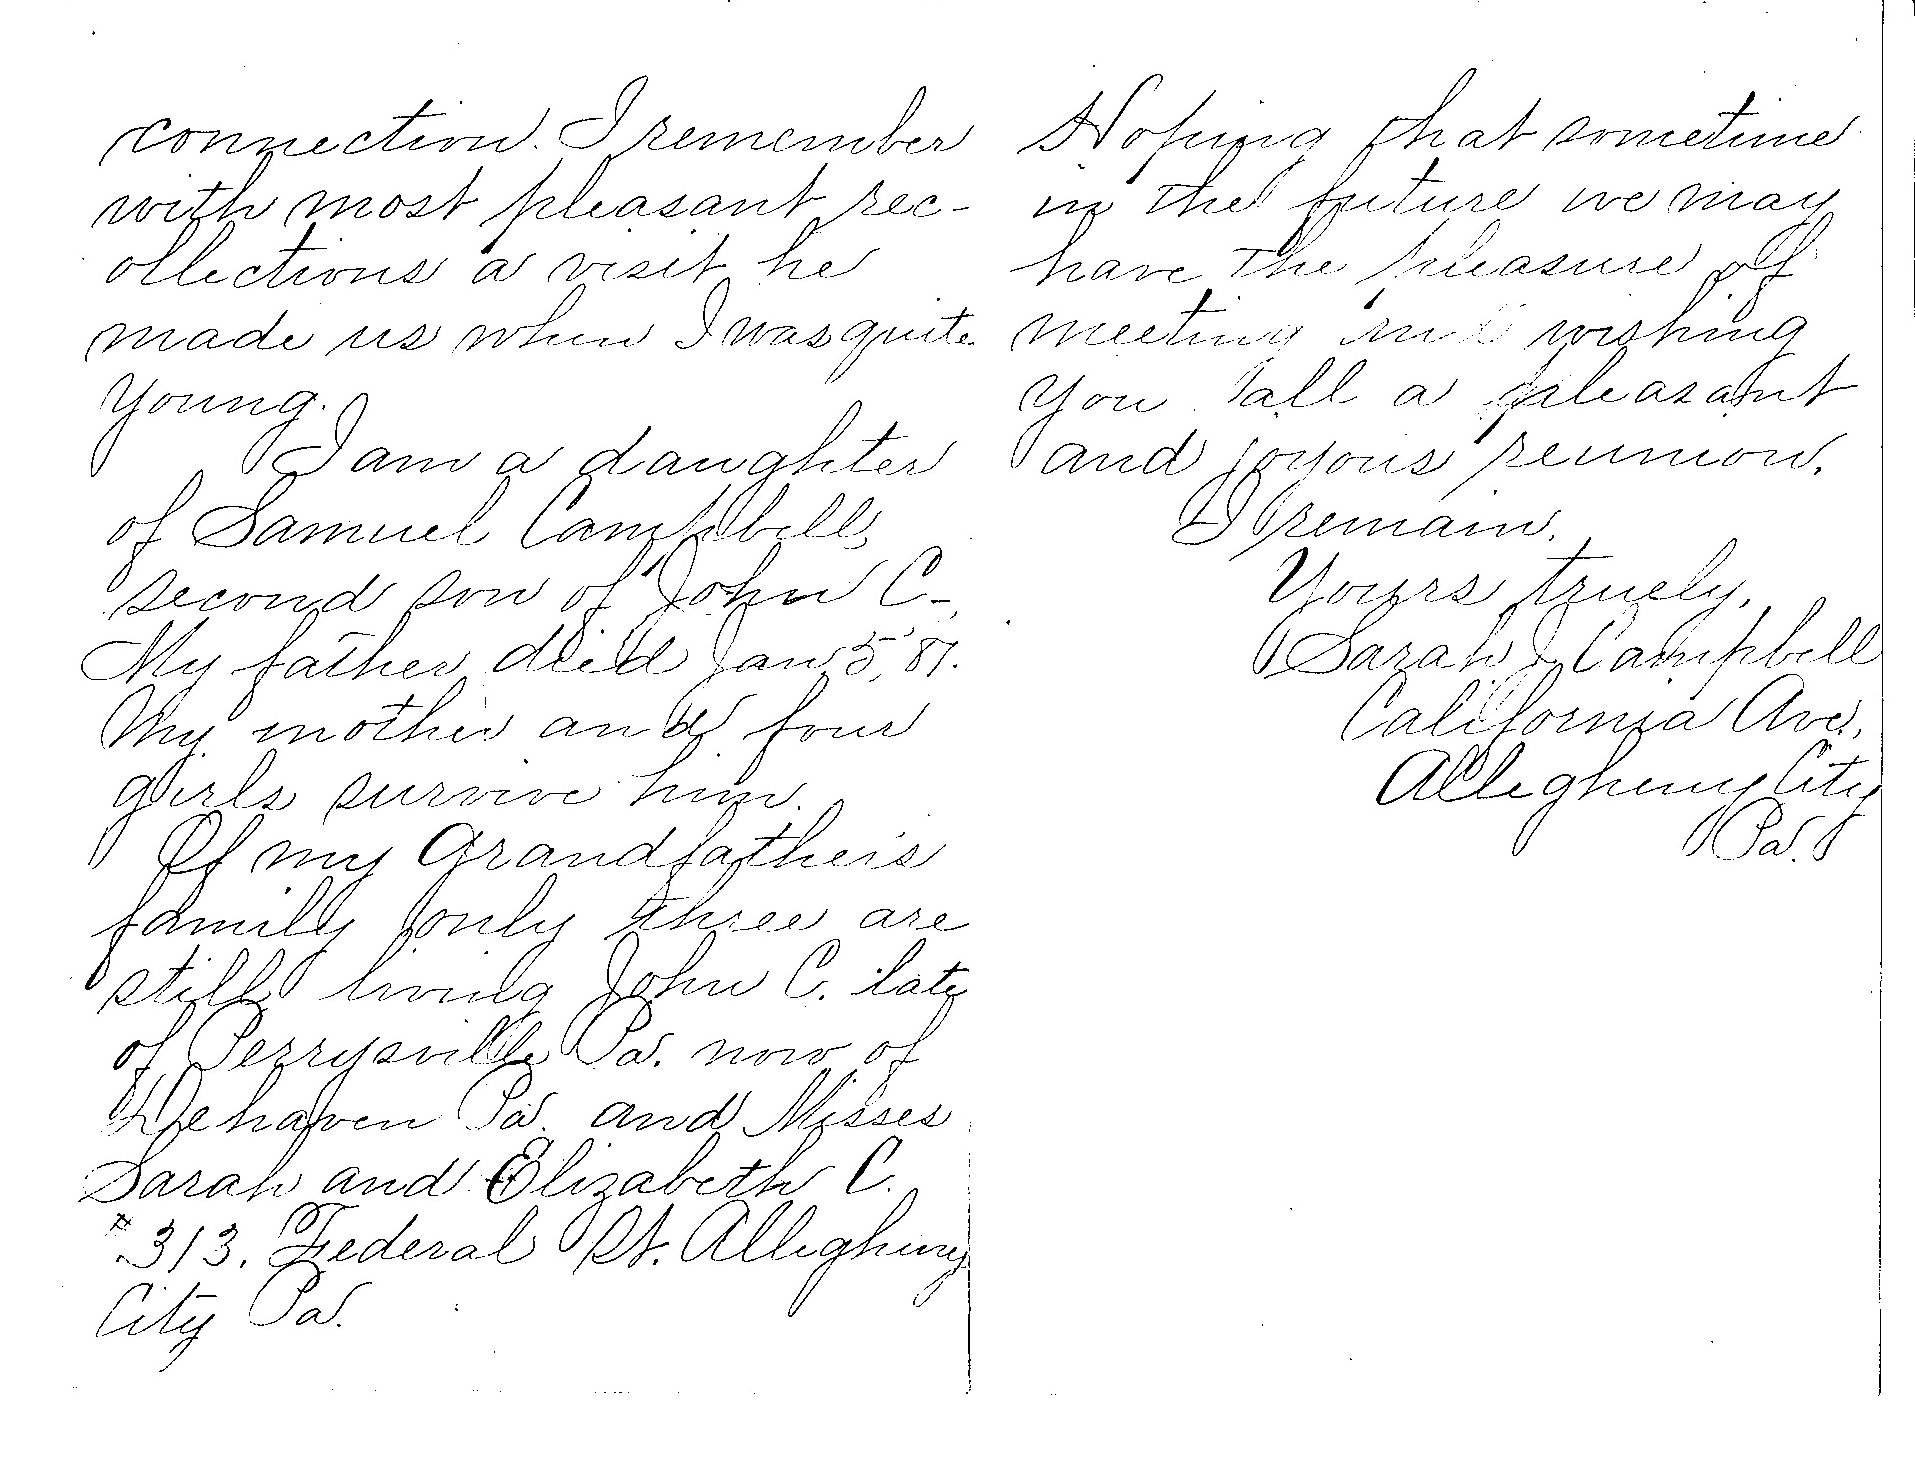 connection. I remember
with most pleasant rec-
ollections a visit he
made us when I was quite
young.
I am a daughter
of Samuel Campbell,
second son of John C-,
My father died Jan, 5, '81.
My mother and four
girls survive him.
Of my Grandfathers
family only three are
still living John C. late
of Perrysville Pa. now of
Dehaven Pa. and Misses
Sarah and Elizabeth C.
#313. Federal St. Allegheny
City Pa.
Hoping that sometime
in the future we may
have the pleasure of
meeting and wishing
you all a pleasant
and joyous reunion,
I remain,
Yours truely,
Sarah J. Campbell
California Ave.,
Allegheny City
Pa.